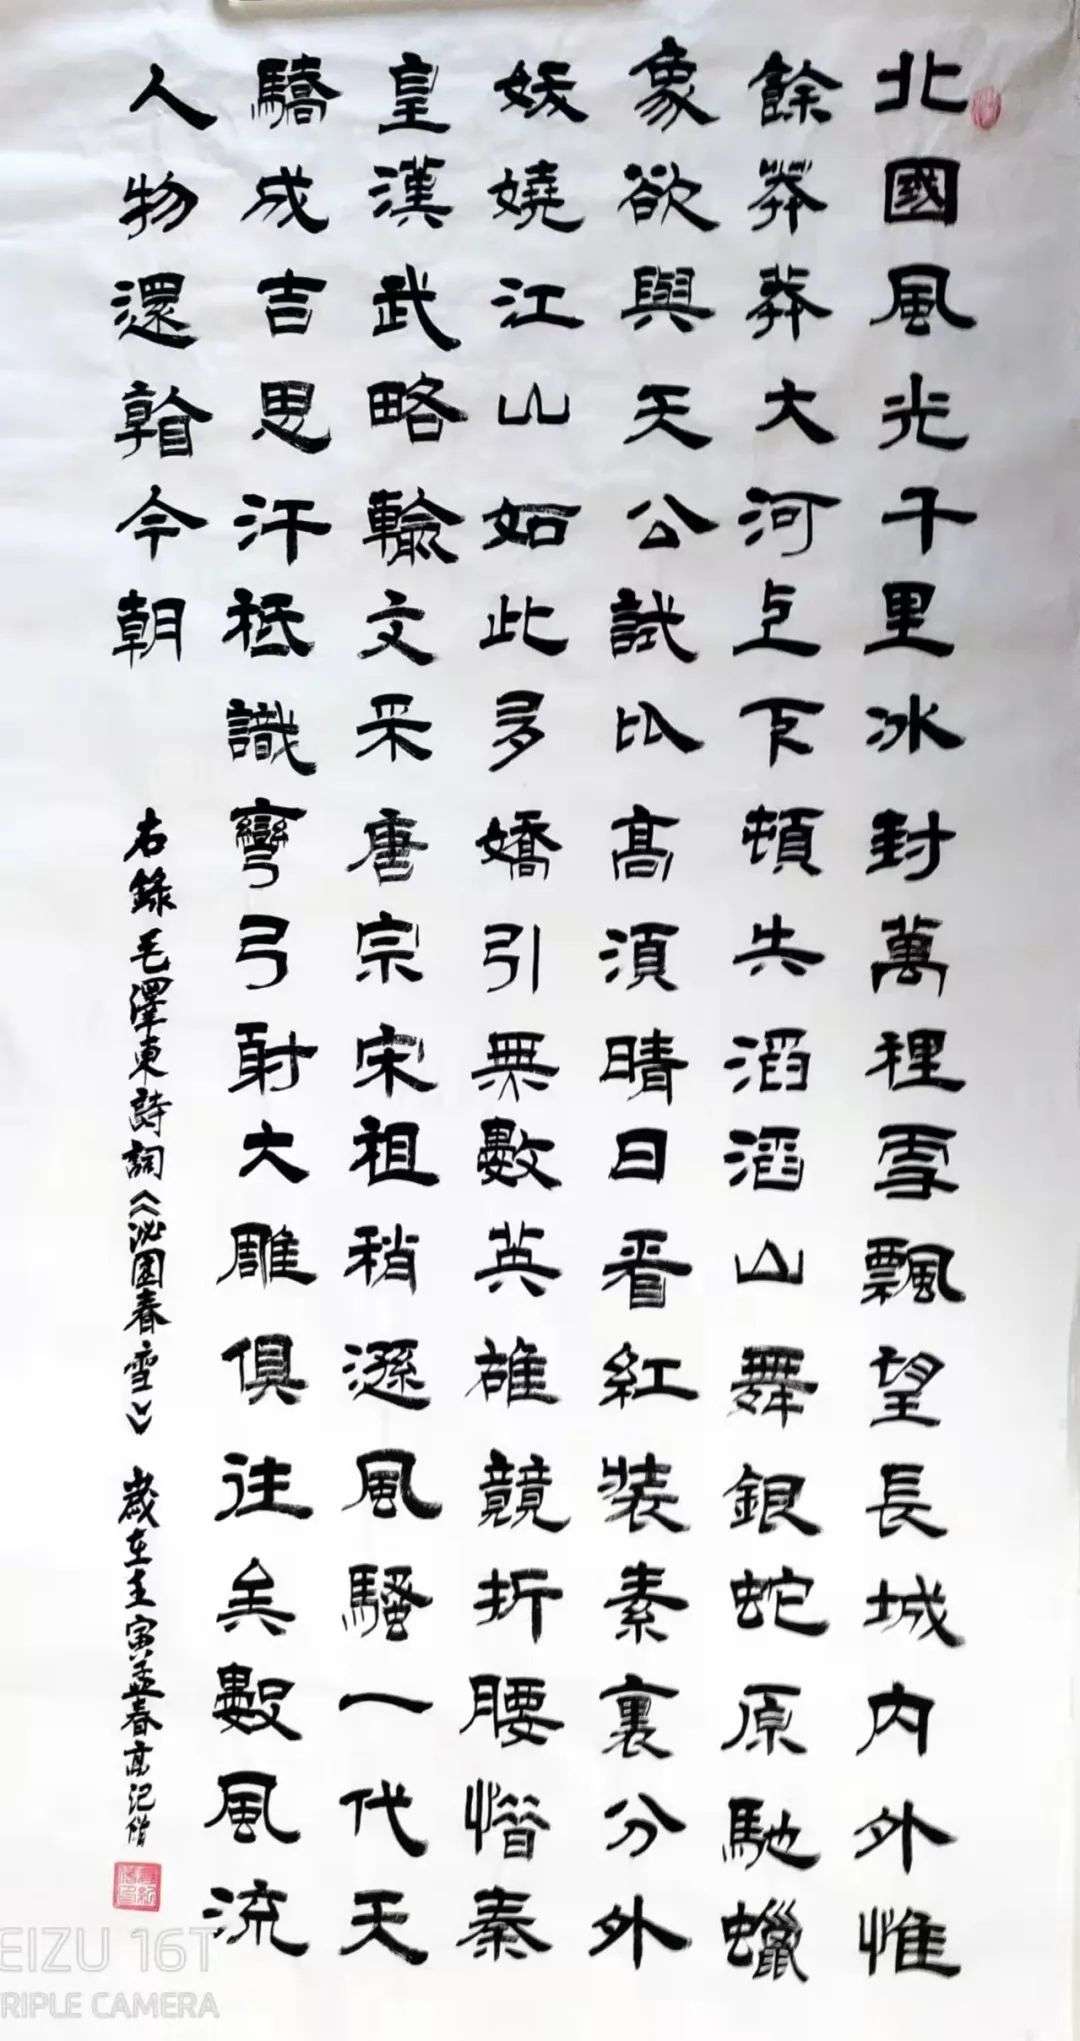 北國風光千里冰封萬裡雪飄望長城內外惟
餘莽莽大河上下頓失滔滔山舞銀蛇原馳蠟
象欲與天公試比高須晴日看紅裝素裹分外
妖嬈江山如此多嬌引無數英雄競折腰惜秦
皇漢武略輸文采唐宗宋祖稍遜風騷一代天
驕成吉思汗祗識彎弓射大雕俱往矣數風流
人物還看今朝
右錄毛澤東詩詞《沁園春雪》歲在壬寅孟春高記
EIZU 16T
RIPLE CAMERA